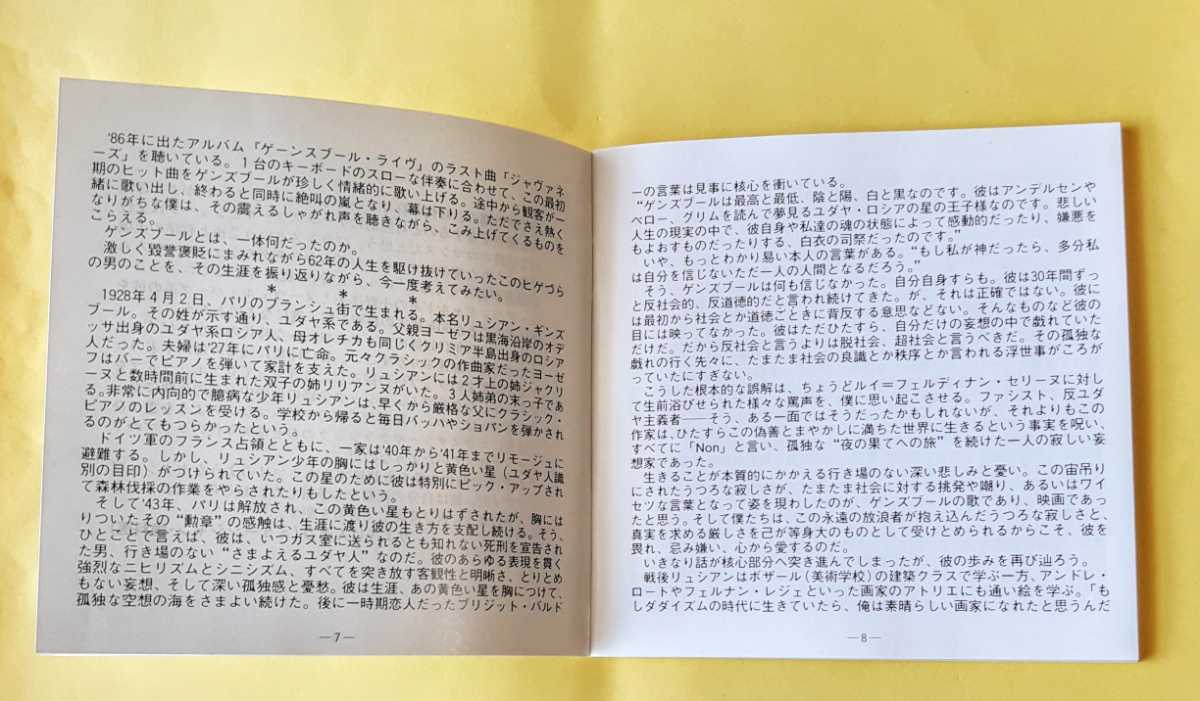 '86年に出たアルバム『ゲーンスブール・ライヴ』のラスト曲「ジャヴァネ
ーズ」を聴いている。1台のキーボードのスローな伴奏に合わせて、この最初
期のヒット曲をゲンズブールが珍しく情緒的に歌い上げる。途中から観客が一
緒に歌い出し、終わると同時に絶叫の嵐となり、幕は下りる。ただでさえ熱く
なりがちな僕は、その震えるしゃがれ声を聴きながら、こみ上げてくるものを
こらえる。
ゲンズブールとは、一体何だったのか。
激しく毀誉褒貶にまみれながら62年の人生を駆け抜けていったこのヒゲづら
の男のことを、その生涯を振り返りながら、今一度考えてみたい。
* * *
1928年4月2日、パリのブランシュ街で生まれる。本名リュシアン・ギンズ
ブール。その姓が示す通り、ユダヤ系である。父親ヨーゼフは黒海沿岸のオデ
ッサ出身のユダヤ系ロシア人、母オレチカも同じくクリミア半島出身のロシア
人だった。夫婦は'27年にパリに亡命。元々クラシックの作曲家だったヨーゼ
フはバーでピアノを弾いて家計を支えた。リュシアンには2才上の姉ジャクリ
ーヌと数時間前に生まれた双子の姉リリアンヌがいた。3人姉弟の末っ子であ
る。非常に内向的で臆病な少年リュシアンは、早くから厳格な父にクラシック・
ピアノのレッスンを受ける。学校から帰ると毎日バッハやショパンを弾かされ
るのがとてもつらかったという。
ドイツ軍のフランス占領とともに、一家は'40年から'41年までリモージュに
避難する。しかし、リュシアン少年の胸にはしっかりと黄色い星（ユダヤ人識
別の目印）がつけられていた。この星のために彼は特別にピック・アップされ
て森林伐採の作業をやらされたりもしたという。
そして'43年、パリは解放され、この黄色い星もとりはずされたが、胸には
りついたその“勲章”の感触は、生涯に渡り彼の生き方を支配し続ける。そう、
ひとことで言えば、彼は、いつガス室に送られるとも知れない死刑を宣告され
た男、行き場のない“さまよえるユダヤ人”なのだ。彼のあらゆる表現を貫く
強烈なニヒリズムとシニシズム、すべてを突き放す客観性と明晰さ、とりとめ
もない妄想、そして深い孤独感と憂愁。彼は生涯、あの黄色い星を胸につけて、
孤独な空想の海をさまよい続けた。後に一時期恋人だったブリジット・バルド
—7—
ーの言葉は見事に核心を衝いている。
“ゲンズブールは最高と最低、陰と陽、白と黒なのです。彼はアンデルセンや
ペロー、グリムを読んで夢見るユダヤ・ロシアの星の王子様なのです。悲しい
人生の現実の中で、彼自身や私達の魂の状態によって感動的だったり、嫌悪を
もよおすものだったりする、白衣の司祭だったのです。”
いや、もっとわかり易い本人の言葉がある。“もし私が神だったら、多分私
は自分を信じないただ一人の人間となるだろう。”
そう、ゲンズブールは何も信じなかった。自分自身すらも。彼は30年間ずっ
と反社会的、反道徳的だと言われ続けてきた。が、それは正確ではない。彼に
は最初から社会とか道徳ごときに背反する意思などない。そんなものなど彼の
目には映ってなかった。彼はただひたすら、自分だけの妄想の中で戯れていた
だけだ。だから反社会と言うよりは脱社会、超社会と言うべきだ。その孤独な
戯れの行く先々に、たまたま社会の良識とか秩序とか言われる浮世事がころが
っていたにすぎない。
こうした根本的な誤解は、ちょうどルイ＝フェルディナン・セリーヌに対し
て生前浴びせられた様々な罵声を、僕に思い起こさせる。ファシスト、反ユダ
ヤ主義者——そう、ある一面ではそうだったかもしれないが、それよりもこの
作家は、ひたすらこの偽善とまやかしに満ちた世界に生きるという事実を呪い、
すべてに「Non」と言い、孤独な“夜の果てへの旅”を続けた一人の寂しい妄
想家であった。
生きることが本質的にかかえる行き場のない深い悲しみと憂い。この宙吊り
にされたうつろな寂しさが、たまたま社会に対する挑発や嘲り、あるいはワイ
セツな言葉となって姿を現わしたのが、ゲンズブールの歌であり、映画であっ
たと思う。そして僕たちは、この永遠の放浪者が抱え込んだうつろな寂しさと、
真実を求める厳しさを己が等身大のものとして受けとめられるからこそ、彼を
畏れ、忌み嫌い、心から愛するのだ。
いきなり話が核心部分へ突き進んでしまったが、彼の歩みを再び辿ろう。
戦後リュシアンはボザール（美術学校）の建築クラスで学ぶ一方、アンドレ・
ロートやフェルナン・レジェといった画家のアトリエにも通い絵を学ぶ。「も
しダダイズムの時代に生きていたら、俺は素晴らしい画家になれたと思うんだ
—8—